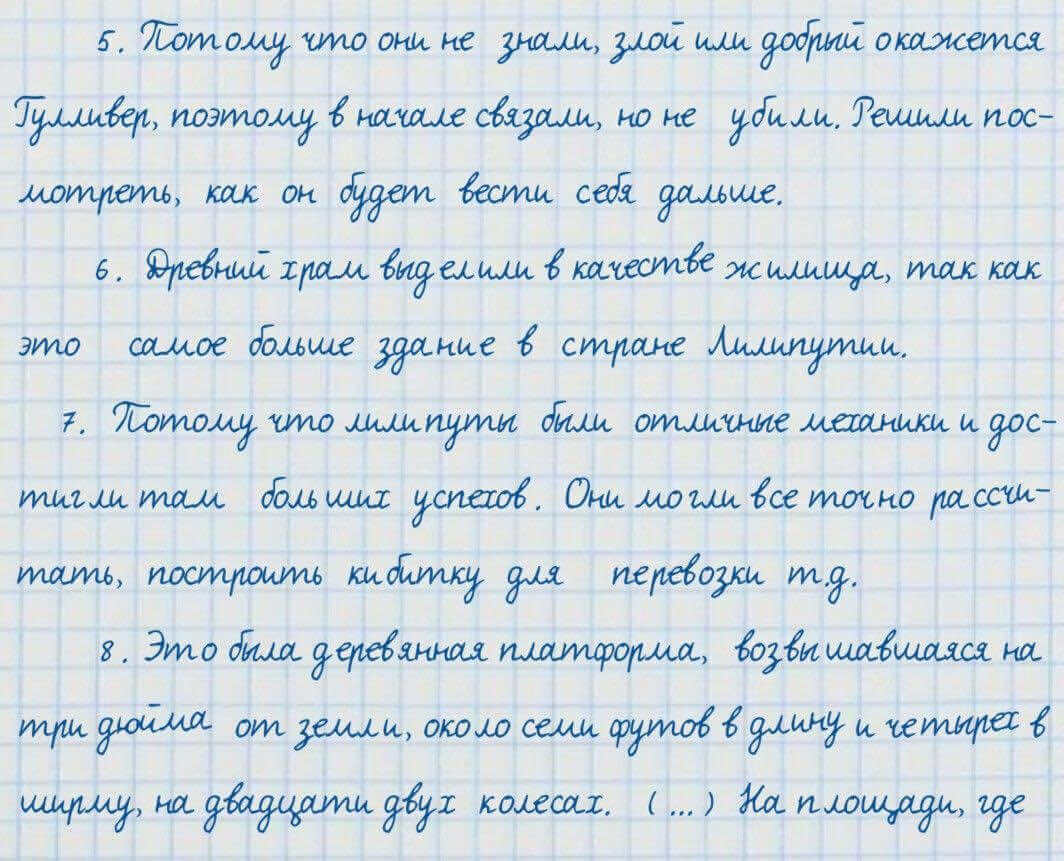 5. Потому что они не знали, злой или добрый окажется
Гулливер, поэтому в начале связали, но не убили. Решили пос-
мотреть, как он будет вести себя дальше.
6. Древний храм выделили в качестве жилища, так как
это самое больше здание в стране Лилипутии.
7. Потому что лилипуты были отличные механики и дос-
тигли там больших успехов. Они могли все точно рассчи-
тать, построить кибитку для перевозки т.д.
8. Это была деревянная платформа, возвышавшаяся на
три дюйма от земли, около семи футов в длину и четырех в
ширму, на двадцати двух колесах. (...) На площади, где